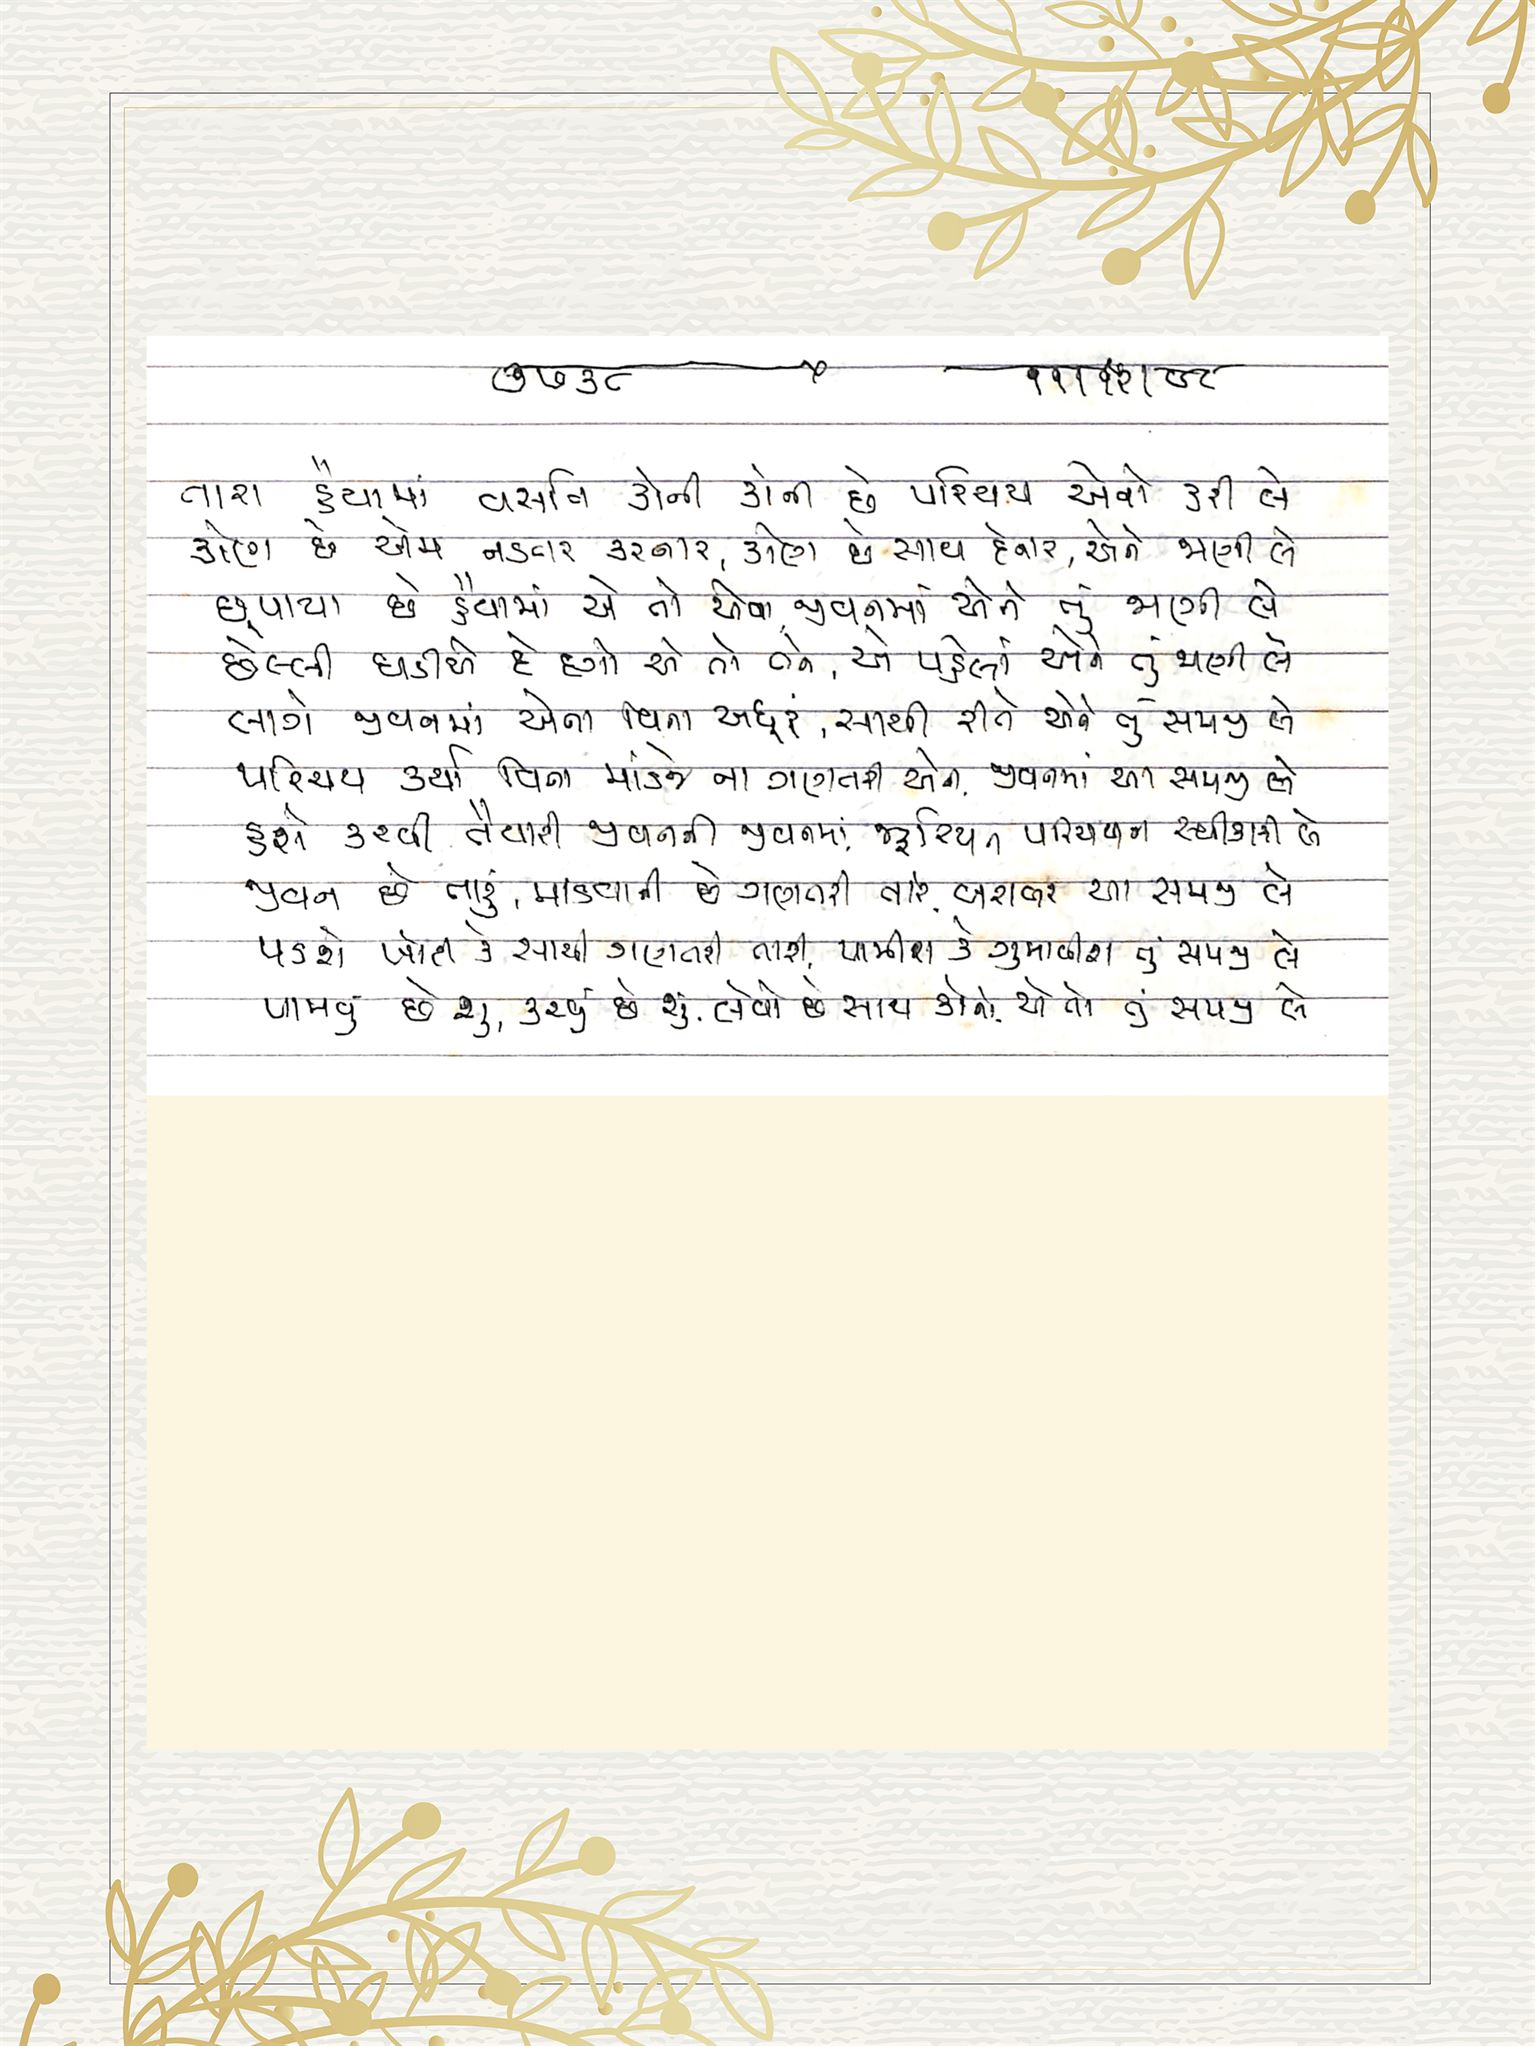 ૭૭૩૮ ૧૧/૧૨/૯૮
તારા હૈયામાં વસતિ કોની કોની છે પરિચય એનો કરી લે
કોણ છે એમ નડતર કરનાર, કોણ છે સાથ દેનાર, એને જાણી લે
છુપાયા છે હૈયામાં એ તો એવા, જીવનમાં એને તું જાણી લે
છેલ્લી ઘડીએ દે દગો એ તો તને, એ પહેલાં એને તું જાણી લે
લાગે જીવનમાં એના વિના અધૂરું, સાચી રીતે એને તું સમજી લે
પરિચય કર્યા વિના માંડજે ના ગણતરી એની, જીવનમાં આ સમજી લે
હશે કરવી તૈયારી જીવનની જીવનમાં, પરિચય સ્વીકારી લે
જીવન છે તારું, માંડવાની છે ગણતરી તારે, બરાબર આ સમજી લે
પડશે ખોટી કે સાચી ગણતરી તારી, પામીશ કે ગુમાવીશ તું સમજી લે
પામવું છે શું, કરવું છે શું, લેવો છે સાથ કોનો, એ તો તું સમજી લે